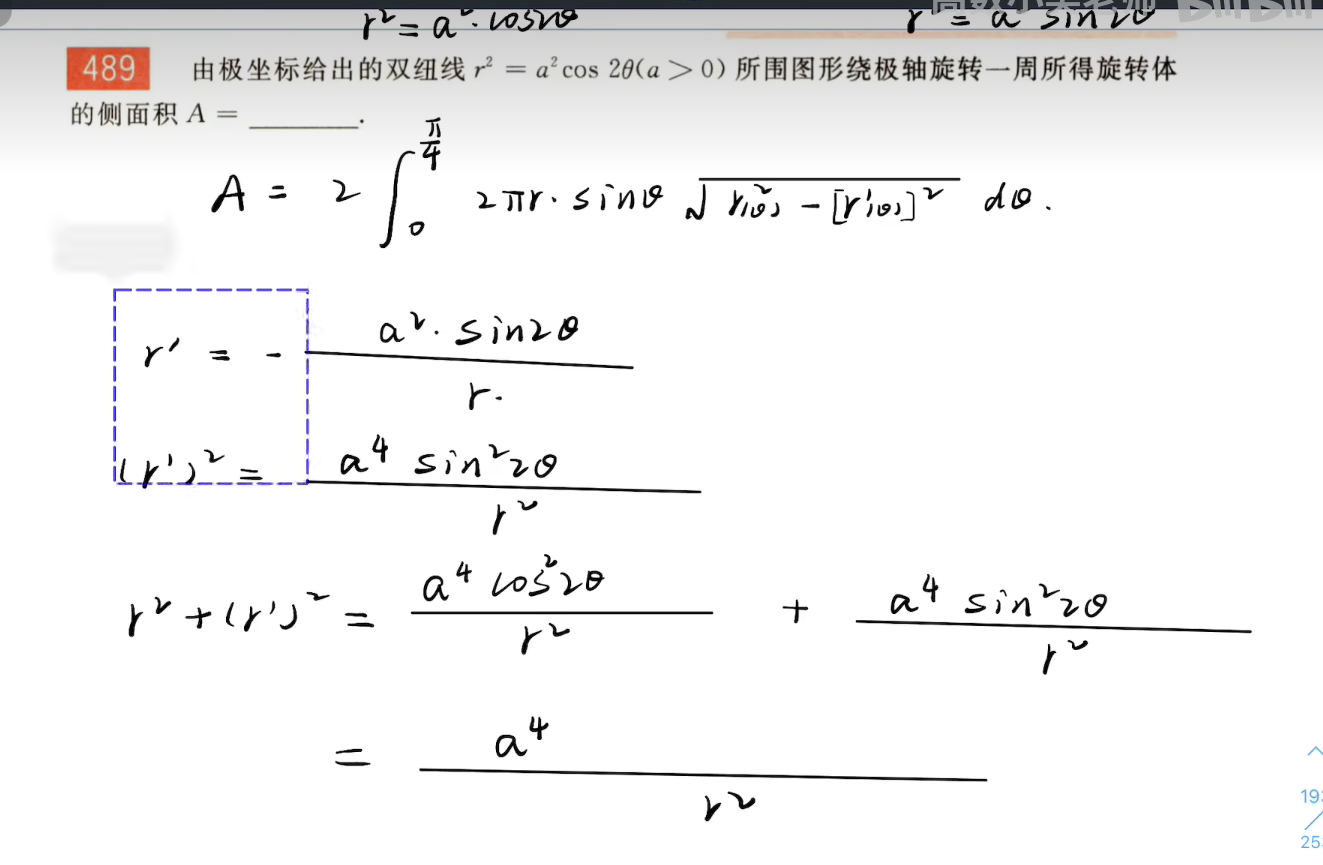 r² = a²·cos2θ r² = a² sin2θ
489 由极坐标给出的双纽线 r² = a²cos 2θ(a > 0) 所围图形绕极轴旋转一周所得旋转体
的侧面积 A = ______.
A = 2 ∫₀^(π/4) 2πr·sinθ √(r²(θ) - [r'(θ)]²) dθ.
r' = - (a²·sin2θ)/(r.)
(r')² = (a⁴ sin²2θ)/(r²)
r² + (r')² = (a⁴ cos²2θ)/(r²) + (a⁴ sin²2θ)/(r²)
= (a⁴)/(r²)